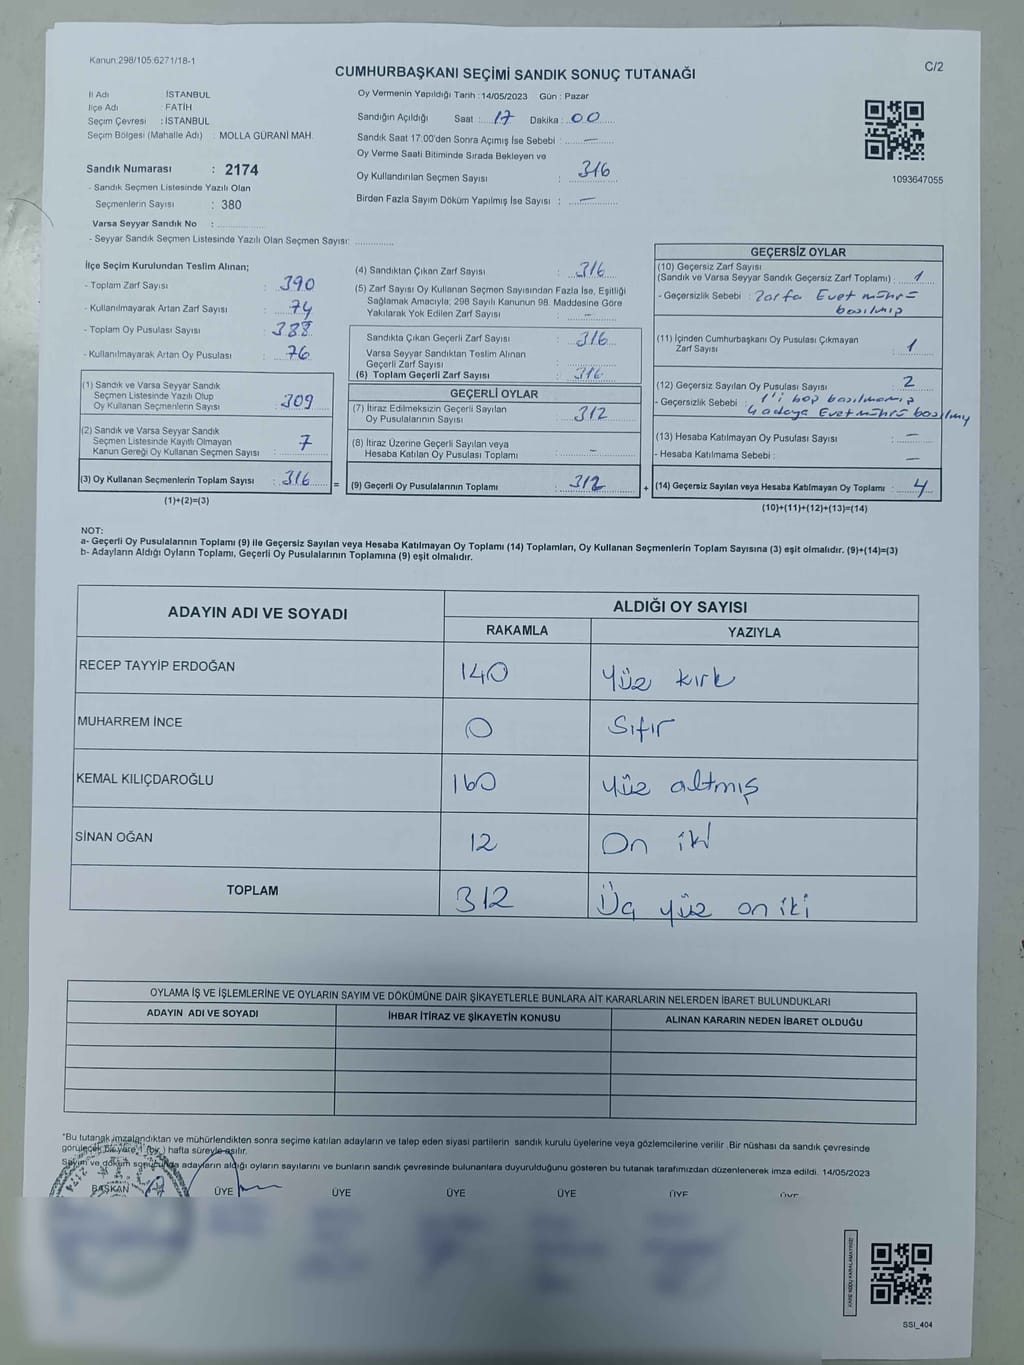 Kanun:298/105.6271/18-1
C/2
CUMHURBAŞKANI SEÇİMİ SANDIK SONUÇ TUTANAĞI
İl Adı : İSTANBUL
İlçe Adı : FATİH
Seçim Çevresi : İSTANBUL
Seçim Bölgesi (Mahalle Adı) : MOLLA GÜRANİ MAH.
Sandık Numarası : 2174
- Sandık Seçmen Listesinde Yazılı Olan
Seçmenlerin Sayısı : 380
Varsa Seyyar Sandık No :
- Seyyar Sandık Seçmen Listesinde Yazılı Olan Seçmen Sayısı:
Oy Vermenin Yapıldığı Tarih : 14/05/2023 Gün : Pazar
Sandığın Açıldığı Saat : 17 Dakika : 00
Sandık Saat 17:00'den Sonra Açılmış İse Sebebi : —
Oy Verme Saati Bitiminde Sırada Bekleyen ve
Oy Kullandırılan Seçmen Sayısı : 316
Birden Fazla Sayım Döküm Yapılmış İse Sayısı : —
1093647055
İlçe Seçim Kurulundan Teslim Alınan;
- Toplam Zarf Sayısı : 390
- Kullanılmayarak Artan Zarf Sayısı : 74
- Toplam Oy Pusulası Sayısı : 388
- Kullanılmayarak Artan Oy Pusulası : 76
(1) Sandık ve Varsa Seyyar Sandık
Seçmen Listesinde Yazılı Olup
Oy Kullanan Seçmenlerin Sayısı : 309
(2) Sandık ve Varsa Seyyar Sandık
Seçmen Listesinde Kayıtlı Olmayan
Kanun Gereği Oy Kullanan Seçmen Sayısı : 7
(3) Oy Kullanan Seçmenlerin Toplam Sayısı : 316
(1)+(2)=(3)
=
(4) Sandıktan Çıkan Zarf Sayısı : 316
(5) Zarf Sayısı Oy Kullanan Seçmen Sayısından Fazla İse, Eşitliği
Sağlamak Amacıyla; 298 Sayılı Kanunun 98. Maddesine Göre
Yakılarak Yok Edilen Zarf Sayısı : —
Sandıkta Çıkan Geçerli Zarf Sayısı : 316
Varsa Seyyar Sandıktan Teslim Alınan
Geçerli Zarf Sayısı :
(6) Toplam Geçerli Zarf Sayısı : 316
GEÇERLİ OYLAR
(7) İtiraz Edilmeksizin Geçerli Sayılan
Oy Pusulalarının Sayısı : 312
(8) İtiraz Üzerine Geçerli Sayılan veya
Hesaba Katılan Oy Pusulası Toplamı : —
(9) Geçerli Oy Pusulalarının Toplamı : 312
+
GEÇERSİZ OYLAR
(10) Geçersiz Zarf Sayısı
(Sandık ve Varsa Seyyar Sandık Geçersiz Zarf Toplamı) : 1
- Geçersizlik Sebebi : Zarfa Evet mührü
basılmış
(11) İçinden Cumhurbaşkanı Oy Pusulası Çıkmayan
Zarf Sayısı : 1
(12) Geçersiz Sayılan Oy Pusulası Sayısı : 2
- Geçersizlik Sebebi : 1'i boş basılmamış
4 adaya Evet mührü basılmış
(13) Hesaba Katılmayan Oy Pusulası Sayısı : —
- Hesaba Katılmama Sebebi : —
(14) Geçersiz Sayılan veya Hesaba Katılmayan Oy Toplamı : 4
(10)+(11)+(12)+(13)=(14)
NOT:
a- Geçerli Oy Pusulalarının Toplamı (9) ile Geçersiz Sayılan veya Hesaba Katılmayan Oy Toplamı (14) Toplamları, Oy Kullanan Seçmenlerin Toplam Sayısına (3) eşit olmalıdır. (9)+(14)=(3)
b- Adayların Aldığı Oyların Toplamı, Geçerli Oy Pusulalarının Toplamına (9) eşit olmalıdır.
ADAYIN ADI VE SOYADI ALDIĞI OY SAYISI
RAKAMLA YAZIYLA
RECEP TAYYİP ERDOĞAN 140 Yüz kırk
MUHARREM İNCE 0 Sıfır
KEMAL KILIÇDAROĞLU 160 Yüz altmış
SİNAN OĞAN 12 On iki
TOPLAM 312 Üç yüz on iki
OYLAMA İŞ VE İŞLEMLERİNE VE OYLARIN SAYIM VE DÖKÜMÜNE DAİR ŞİKAYETLERLE BUNLARA AİT KARARLARIN NELERDEN İBARET BULUNDUKLARI
ADAYIN ADI VE SOYADI İHBAR İTİRAZ VE ŞİKAYETİN KONUSU ALINAN KARARIN NEDEN İBARET OLDUĞU
*Bu tutanak imzalandıktan ve mühürlendikten sonra seçime katılan adayların ve talep eden siyasi partilerin sandık kurulu üyelerine veya gözlemcilerine verilir .Bir nüshası da sandık çevresinde
görülecek bir yere 1 (bir) hafta süreyle asılır.
Sayım ve döküm sonucunda adayların aldığı oyların sayılarını ve bunların sandık çevresinde bulunanlara duyurulduğunu gösteren bu tutanak tarafımızdan düzenlenerek imza edildi. 14/05/2023
BAŞKAN ÜYE ÜYE ÜYE ÜYE ÜYE ÜYE
KARE KODU KARALAMAYINIZ!
SSI_404